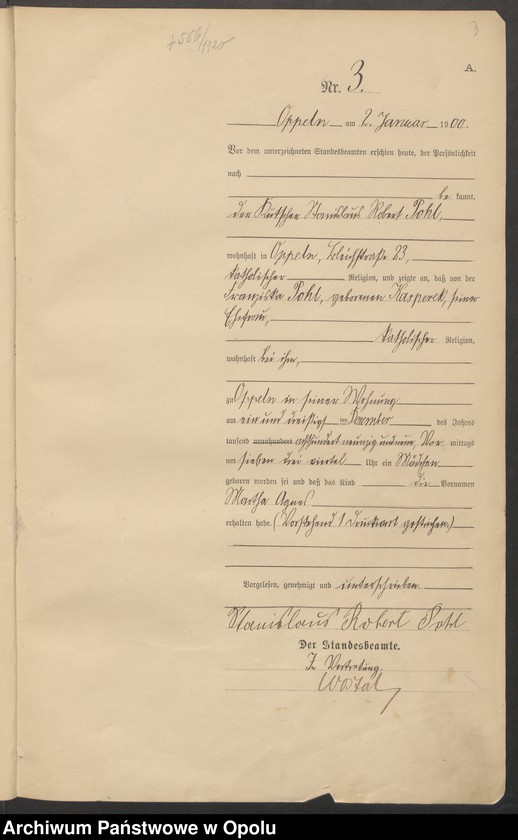 3
+ 556/1920
A.
Nr. 3.
Oppeln am 2. Januar 1900.
Vor dem unterzeichneten Standesbeamten erschien heute, der Persönlichkeit
nach
be kannt,
der Kutscher Stanislaus Robert Pohl,
wohnhaft in Oppeln, Bleichstraße 23,
katholischer Religion, und zeigte an, daß von der
Franziska Pohl, geborenen Kasperek, seiner
Ehefrau,
katholischer Religion,
wohnhaft bei ihm,
zu Oppeln in seiner Wohnung
am ein und dreißigsten Dezember des Jahres
tausend neunhundert achthundert neunzig und neun, Vor mittags
um sieben drei viertel Uhr ein Mädchen
geboren worden sei und daß das Kind die Vornamen
Martha Agnes
erhalten habe. (Vorstehend 1 Druckwort gestrichen.)
Vorgelesen, genehmigt und unterschrieben
Stanislaus Robert Pohl
Der Standesbeamte.
In Vertretung.
Archiwum Państwowe w Opolu